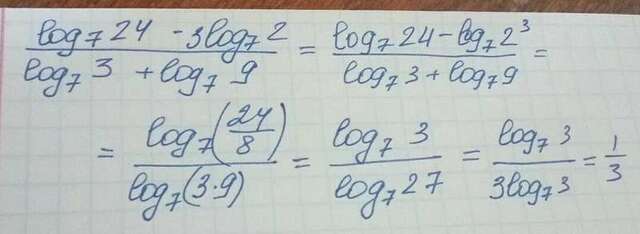 (log₇ 24 - 3log₇ 2)/(log₇ 3 + log₇ 9) = (log₇ 24 - log₇ 2³)/(log₇ 3 + log₇ 9) =
= log₇(24/8)/log₇(3·9) = log₇ 3/log₇ 27 = log₇ 3/3log₇ 3 = 1/3